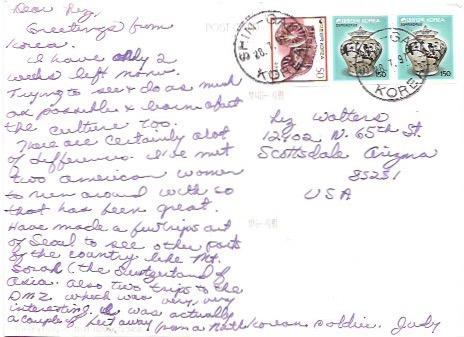 Dear Liz,
Greetings from
Korea.
I have only 2
weeks left now.
Trying to see & do as much
as possible & learn about
the culture too.
There are certainly alot
of differences. I've met
two american women
to run around with so
that has been great.
Have made a few trips out
of Seoul to see other parts
of the country like Mt.
Sorak (the Switzerland of
Asia. Also two trips to the
DMZ which was very, very
interesting. I was actually
a couple of feet away from a North Korean soldier. Judy
POST
SHIN-GA
KOREA
50
대한민국 KOREA
150
대한민국 KOREA
150
KOREA
Liz Walters
12402 N. 65th St.
Scottsdale Arizona
85251
USA